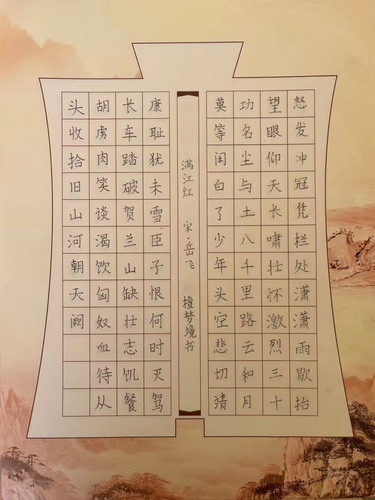 怒发冲冠凭栏处潇潇雨歇抬
望眼仰天长啸壮怀激烈三十
功名尘与土八千里路云和月
莫等闲白了少年头空悲切靖
满江红 宋·岳飞 檀梦境书
康耻犹未雪臣子恨何时灭驾
长车踏破贺兰山缺壮志饥餐
胡虏肉笑谈渴饮匈奴血待从
头收拾旧山河朝天阙